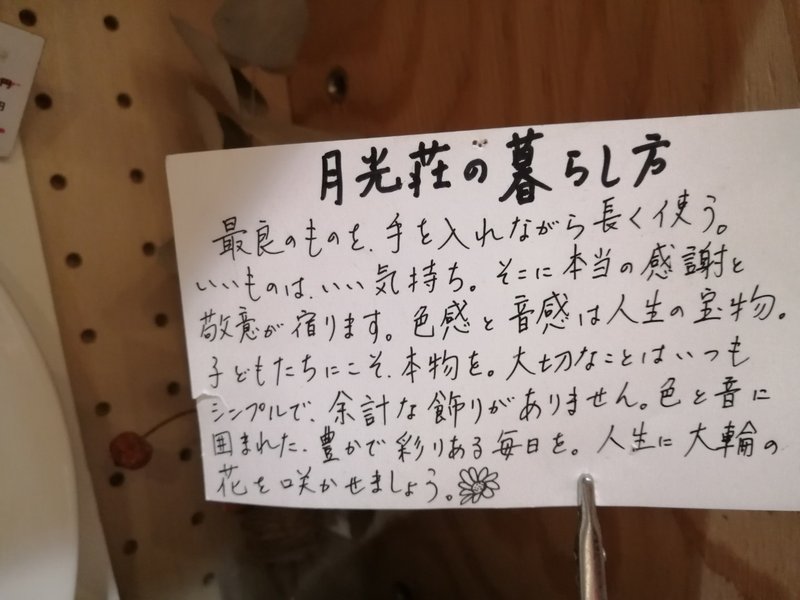 月光荘の暮らし方
最良のものを、手を入れながら長く使う。
いいものは、いい気持ち。そこに本当の感謝と
敬意が宿ります。色感と音感は人生の宝物。
子どもたちにこそ、本物を。大切なことはいつも
シンプルで、余計な飾りがありません。色と音に
囲まれた、豊かで彩りある毎日を。人生に大輪の
花を咲かせましょう。